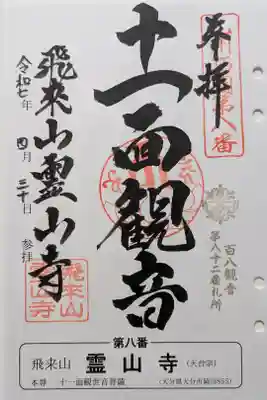 奉拝
第八番
十一面観音
百八観音
第八十二番札所
飛来山霊山寺
令和七年 四月 三十日 参拝
飛来山
霊山寺
第八番
飛来山 霊山寺 (天台宗)
本尊 十一面観世音菩薩